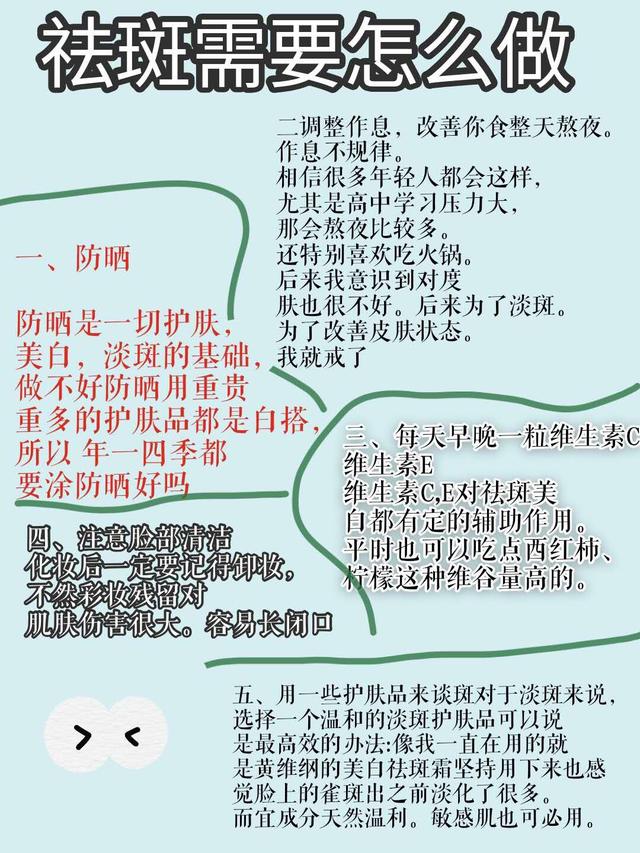 祛斑需要怎么做
二调整作息，改善你食整天熬夜。
作息不规律。
相信很多年轻人都会这样，
尤其是高中学习压力大，
那会熬夜比较多。
还特别喜欢吃火锅。
后来我意识到对度
肤也很不好。后来为了淡斑。
为了改善皮肤状态。
我就戒了
一、防晒
防晒是一切护肤，
美白，淡斑的基础，
做不好防晒用重贵
重多的护肤品都是白搭，
所以 年一四季都
要涂防晒好吗
三、每天早晚一粒维生素C
维生素E
维生素C,E对祛斑美
白都有定的辅助作用。
平时也可以吃点西红柿、
柠檬这种维谷量高的。
四、注意脸部清洁
化妆后一定要记得卸妆，
不然彩妆残留对
肌肤伤害很大。容易长闭口
五、用一些护肤品来谈斑对于淡斑来说，
选择一个温和的淡斑护肤品可以说
是最高效的办法:像我一直在用的就
是黄维纲的美白祛斑霜坚持用下来也感
觉脸上的雀斑出之前淡化了很多。
而宜成分天然温利。敏感肌也可必用。